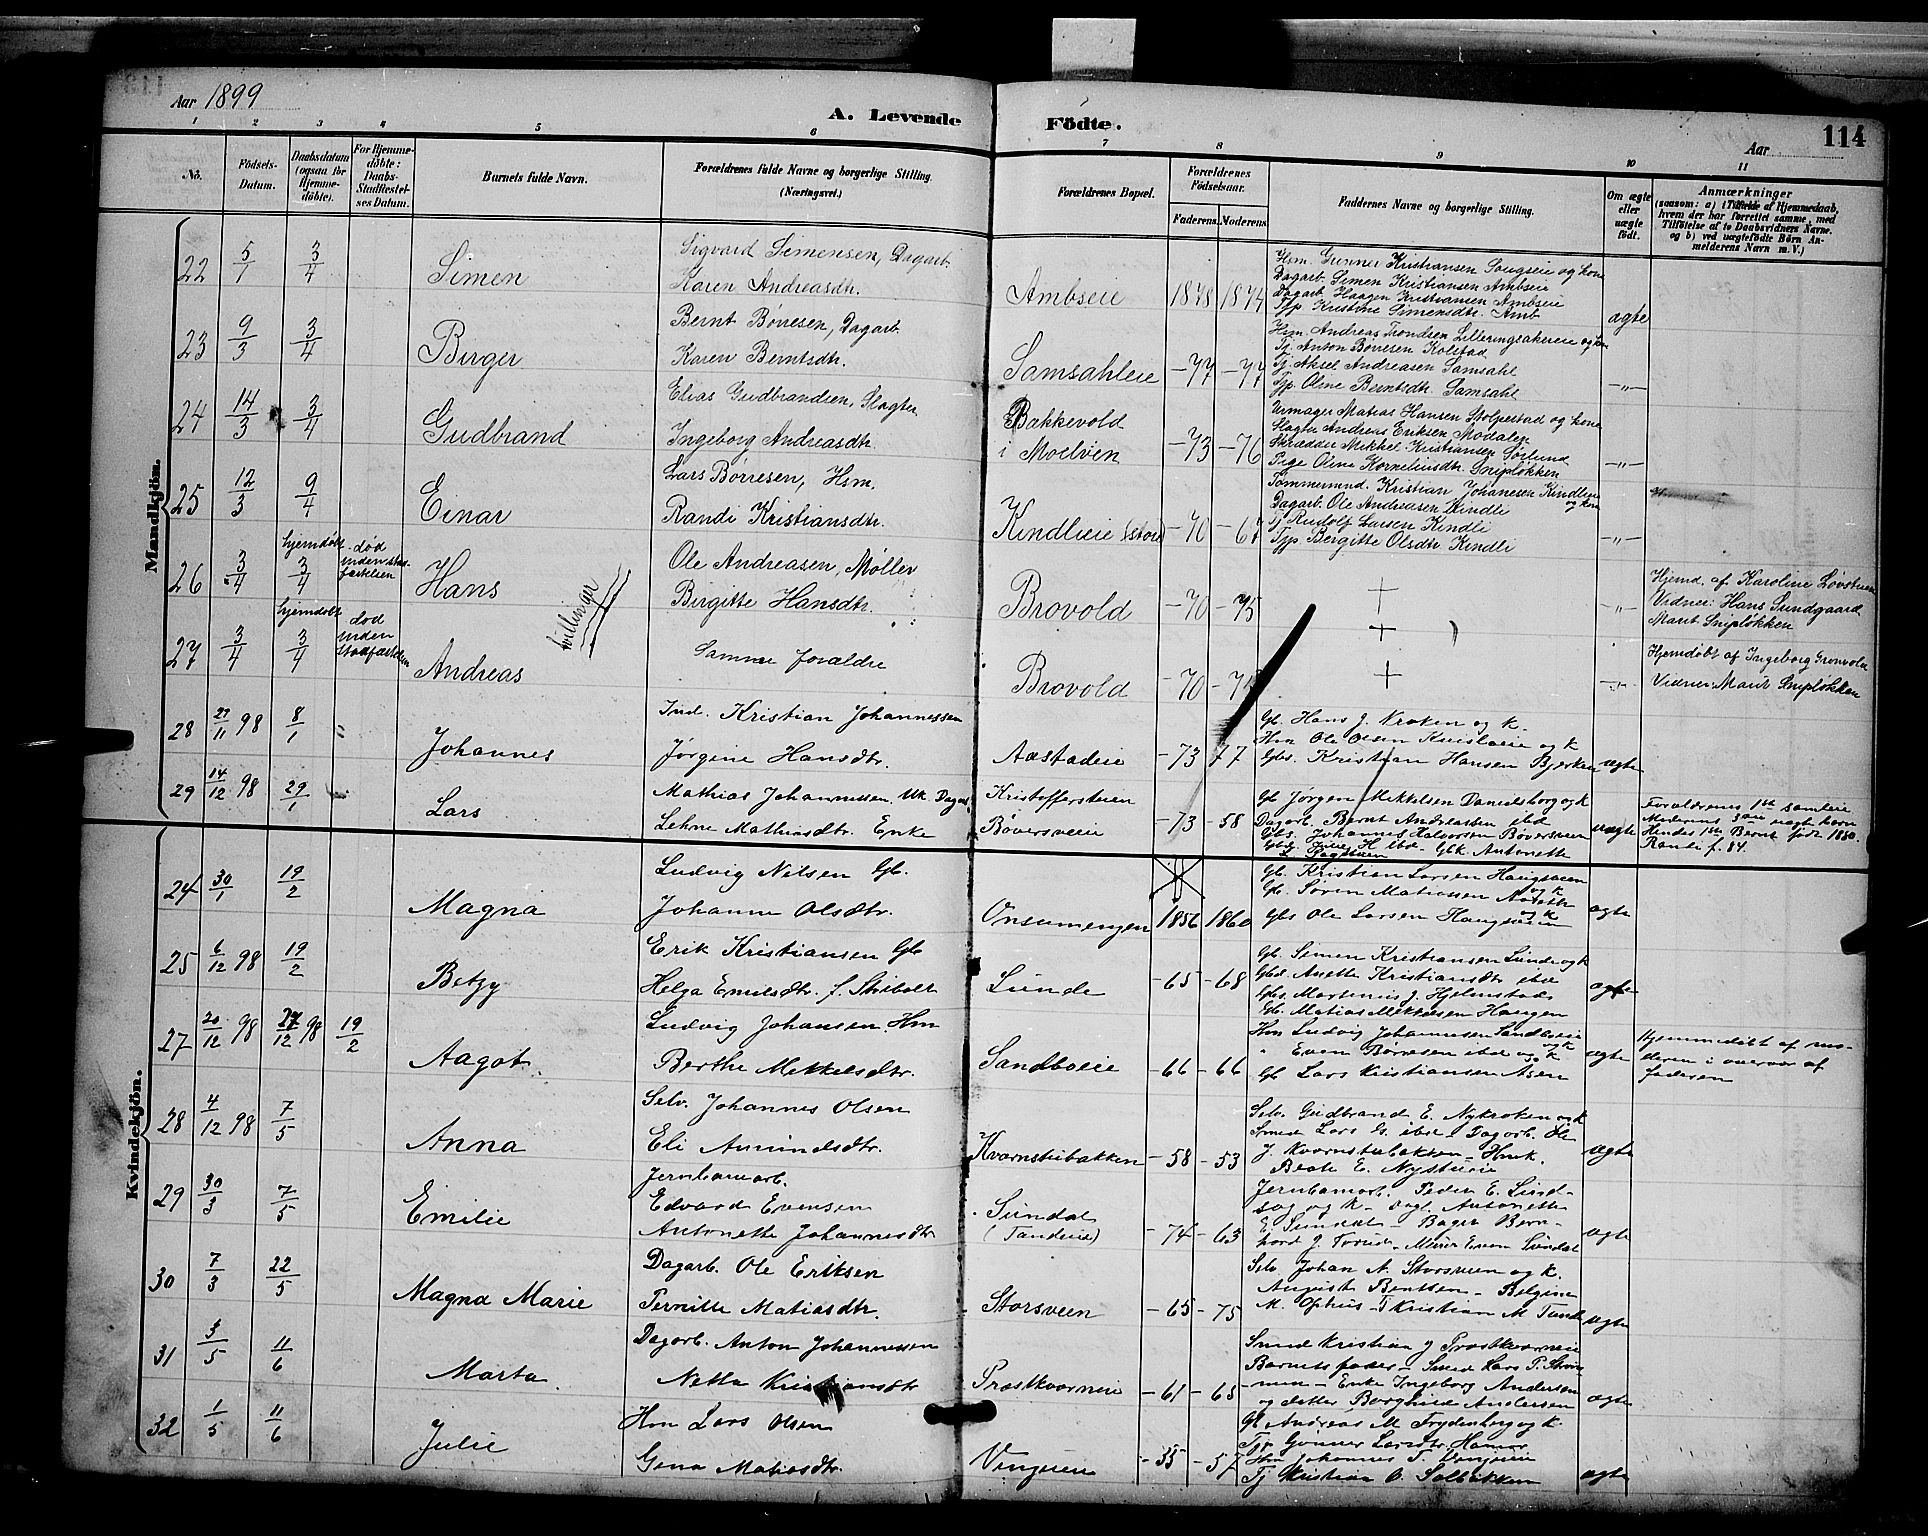 Aar 1899
A. Levende Födte.
114
Aar
1 2 3 4 5 6 7 8 9 10 11
No.
Födsels-Datum.
Daabsdatum (ogsaa for Hjemme-döbte).
For Hjemme-döbte: Daabs-Stadfæstel-ses Datum.
Barnets fulde Navn.
Forældrenes fulde Navne og borgerlige Stilling. (Næringsvei.)
Forældrenes Bopæl.
Forældrenes Födselsaar.
Faderens. Moderens.
Faddernes Navne og borgerlige Stilling.
Om ægte eller uægte födt.
Anmærkninger
(saasom: a) i Tilfælde af Hjemmedaab, hvem der har forrettet samme, med Tilföielse af to Daabsvidners Navne. og b) ved uægtefödte Börn An-melderens Navn m. V.)
Mandkjön.
22 5/1 3/4 Simen
Sigvard Simensen, Dagarb.
Karen Andreasdtr.
Ambseie 1878 1874
Hsm. Gunner Kristiansen Saugseie og kone
Dagarb. Simen Kristiansen Ambseie
Dagarb. Haagen Kristiansen Ambseie
Tjp. Kristine Simensdtr. Amb
ægte
23 9/3 3/4 Birger
Bernt Børresen, Dagarb.
Karen Berntsdtr.
Samsahleie -77 -77
Hsm. Andreas Trondsen Lilleringsakereie og kone
Tj. Anton Børresen Kolstad
Tj. Aksel Andreasen Samsahl
Tjp. Oline Berntsdtr. Samsahl
-"-
24 14/3 3/4 Gudbrand
Elias Gudbrandsen, Slagter
Ingeborg Andreasdtr.
Bakkevold
i Moelven -73 -76
Urmager Matias Hansen Stolpestad og kone
Slagter Andreas Eriksen Modalen
Skrædder Mikkel Kristiansen Sørlund
Pige Oline Korneliusdtr. Snipløkken
-"-
25 12/3 9/4 Einar
Lars Børresen, Hsm.
Randi Kristiansdtr.
Kindlieie (store) -70 -67
Tømmermd. Kristian Johanesen Kindlieie og kone
Dagarb. Ole Andreasen Kindli
Tj Rudolf Larsen Kindli
Tjp Bergitte Olsdtr Kindli
-"-
26 3/4 hjemdøbt 3/4 død inden stad-fæstelsen Hans
Tvillinger
Ole Andreasen, Møller
Birgitte Hansdtr.
Brovold -70 -75
-"-
Hjemd. af Karoline Løvstuen
Vidner: Hans Sundgaard
Marit Snipløkken
27 3/4 hjemdøbt 3/4 død inden stadfæstelsen Andreas
Samme forældre
Brovold -70 -75
-"-
Hjemdøbt af Ingeborg Grønvold
Vidner: Marit Snipløkken
28 27/11 98 8/1 Johannes
Ind. Kristian Johannessen
Jørgine Hansdtr.
Aastadeie -73 77
Gb. Hans J. Kroken og k.
Hm Ole Olsen Kvislaeie og k
Gbs. Kristian Hansen Bjerken
uægte
29 14/12 98 29/1 Lars
Mathias Johannessen. Uk. Dagarb.
Lehne Mathiasdtr. Enke
Kristoffersteien
Bøversveie -73 -58
Gb Jørgen Mikkelsen Danielsborg og k
Dagarb. Bernt Andreassen ibd
Gbs. Johannes Halvorsen Bøversveen
uægte
Forældrenes 1ste samleie
Moderens 3die uægte barn
Hendes 1ste Bernt født 1880.
Randi f. 84.
Kvindekjön.
24 30/1 19/2 Magna
Ludvig Nilsen Gb.
Johanne Olsdtr.
Onsumengen 1856 1860
Gb. Kristian Larsen Haugsveen og k
Gb. Søren Matiassen
Gbs Ole Larsen Haugsveen
ægte
25 6/12 98 19/2 Betzy
Erik Kristiansen Gb
Helga Emilsdtr. f. Stibolt
Lunde -65 -68
Gb. Simen Kristiansen Lunde og k
Gbd. Anette Kristiansdtr ibd
Gbs. Martenius J. Hjelmstad
Gb. Matias Mikkelsen Haugen
ægte
27 20/12 98 27/12 98 19/2 Aagot
Ludvig Johansen. Hm
Berthe Mikkelsdtr.
Sandboeie -66 -66
Hm Ludvig Johannesen Sandboeie og k
" Even Børresen ibd og k
Gb Lars Kristiansen Aasen
ægte
Hjemmedøbt af mo-
deren i overvær af
faderen
28 4/12 98 7/5 Anna
Selv. Johannes Olsen
Eli Amundsdtr.
Kvarnstubakken -58 -53
Selv. Gudbrand E. Nykroken og k
Smed Lars G. ibd - Dagarb. Ole
J. Kvarnstubakken - Hmk.
Beate E. Nystueie
ægte
29 30/3 7/5 Emilie
Jernbanearb.
Edvard Evensen
Antonette Johannesdtr
Sundal
(Tandeie) -74 -63
Jernbanearb. Peder E. Lund-
og k - Dagl. Antonette
E. Sundal - Bager Bern-
hard J. - Murer Even Sundal
ægte
30 7/3 22/5 Magna Marie
Dagarb. Ole Eriksen
Pernille Matiasdtr.
Storsveen -65 -75
Selv. Johan A. Storsveen og k.
August Bentsen - Belgine
M. Ophus - Tj Kristian M Tande
ægte
31 3/5 11/6 Marta
Dagarb. Anton Johannessen
Netta Kristiansdtr
Præstkværneie -61 -65
Smed Kristian J Præstkværneie
Barnets fader - Smed Lars P. Strøm-
men - Enke Ingeborg Andersen
og datter Borghild Andersen
ægte
32 1/5 11/6 Julie
Hm Lars Olsen
Gina Matiasdtr.
Vingeien -55 -57
Gb Andreas M Frydenberg og k.
Tjp Gunner Larsdtr. Hamar
Hm Johannes T. Vingeien
Tj Kristian O. Solbakken
ægte